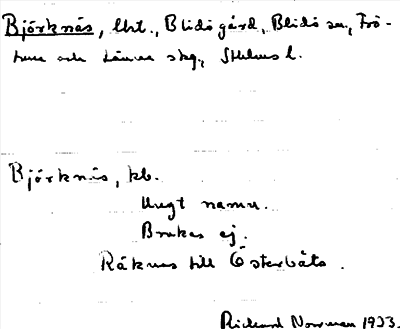 Björknäs, lht., Blidö gård, Blidö sn, Frö-
tuna och Länna skg, Sthlms l.
Björknäs, kb.
Ungt namn.
Brukas ej.
Räknas till Österbåts.
Richard Norrman 1933.